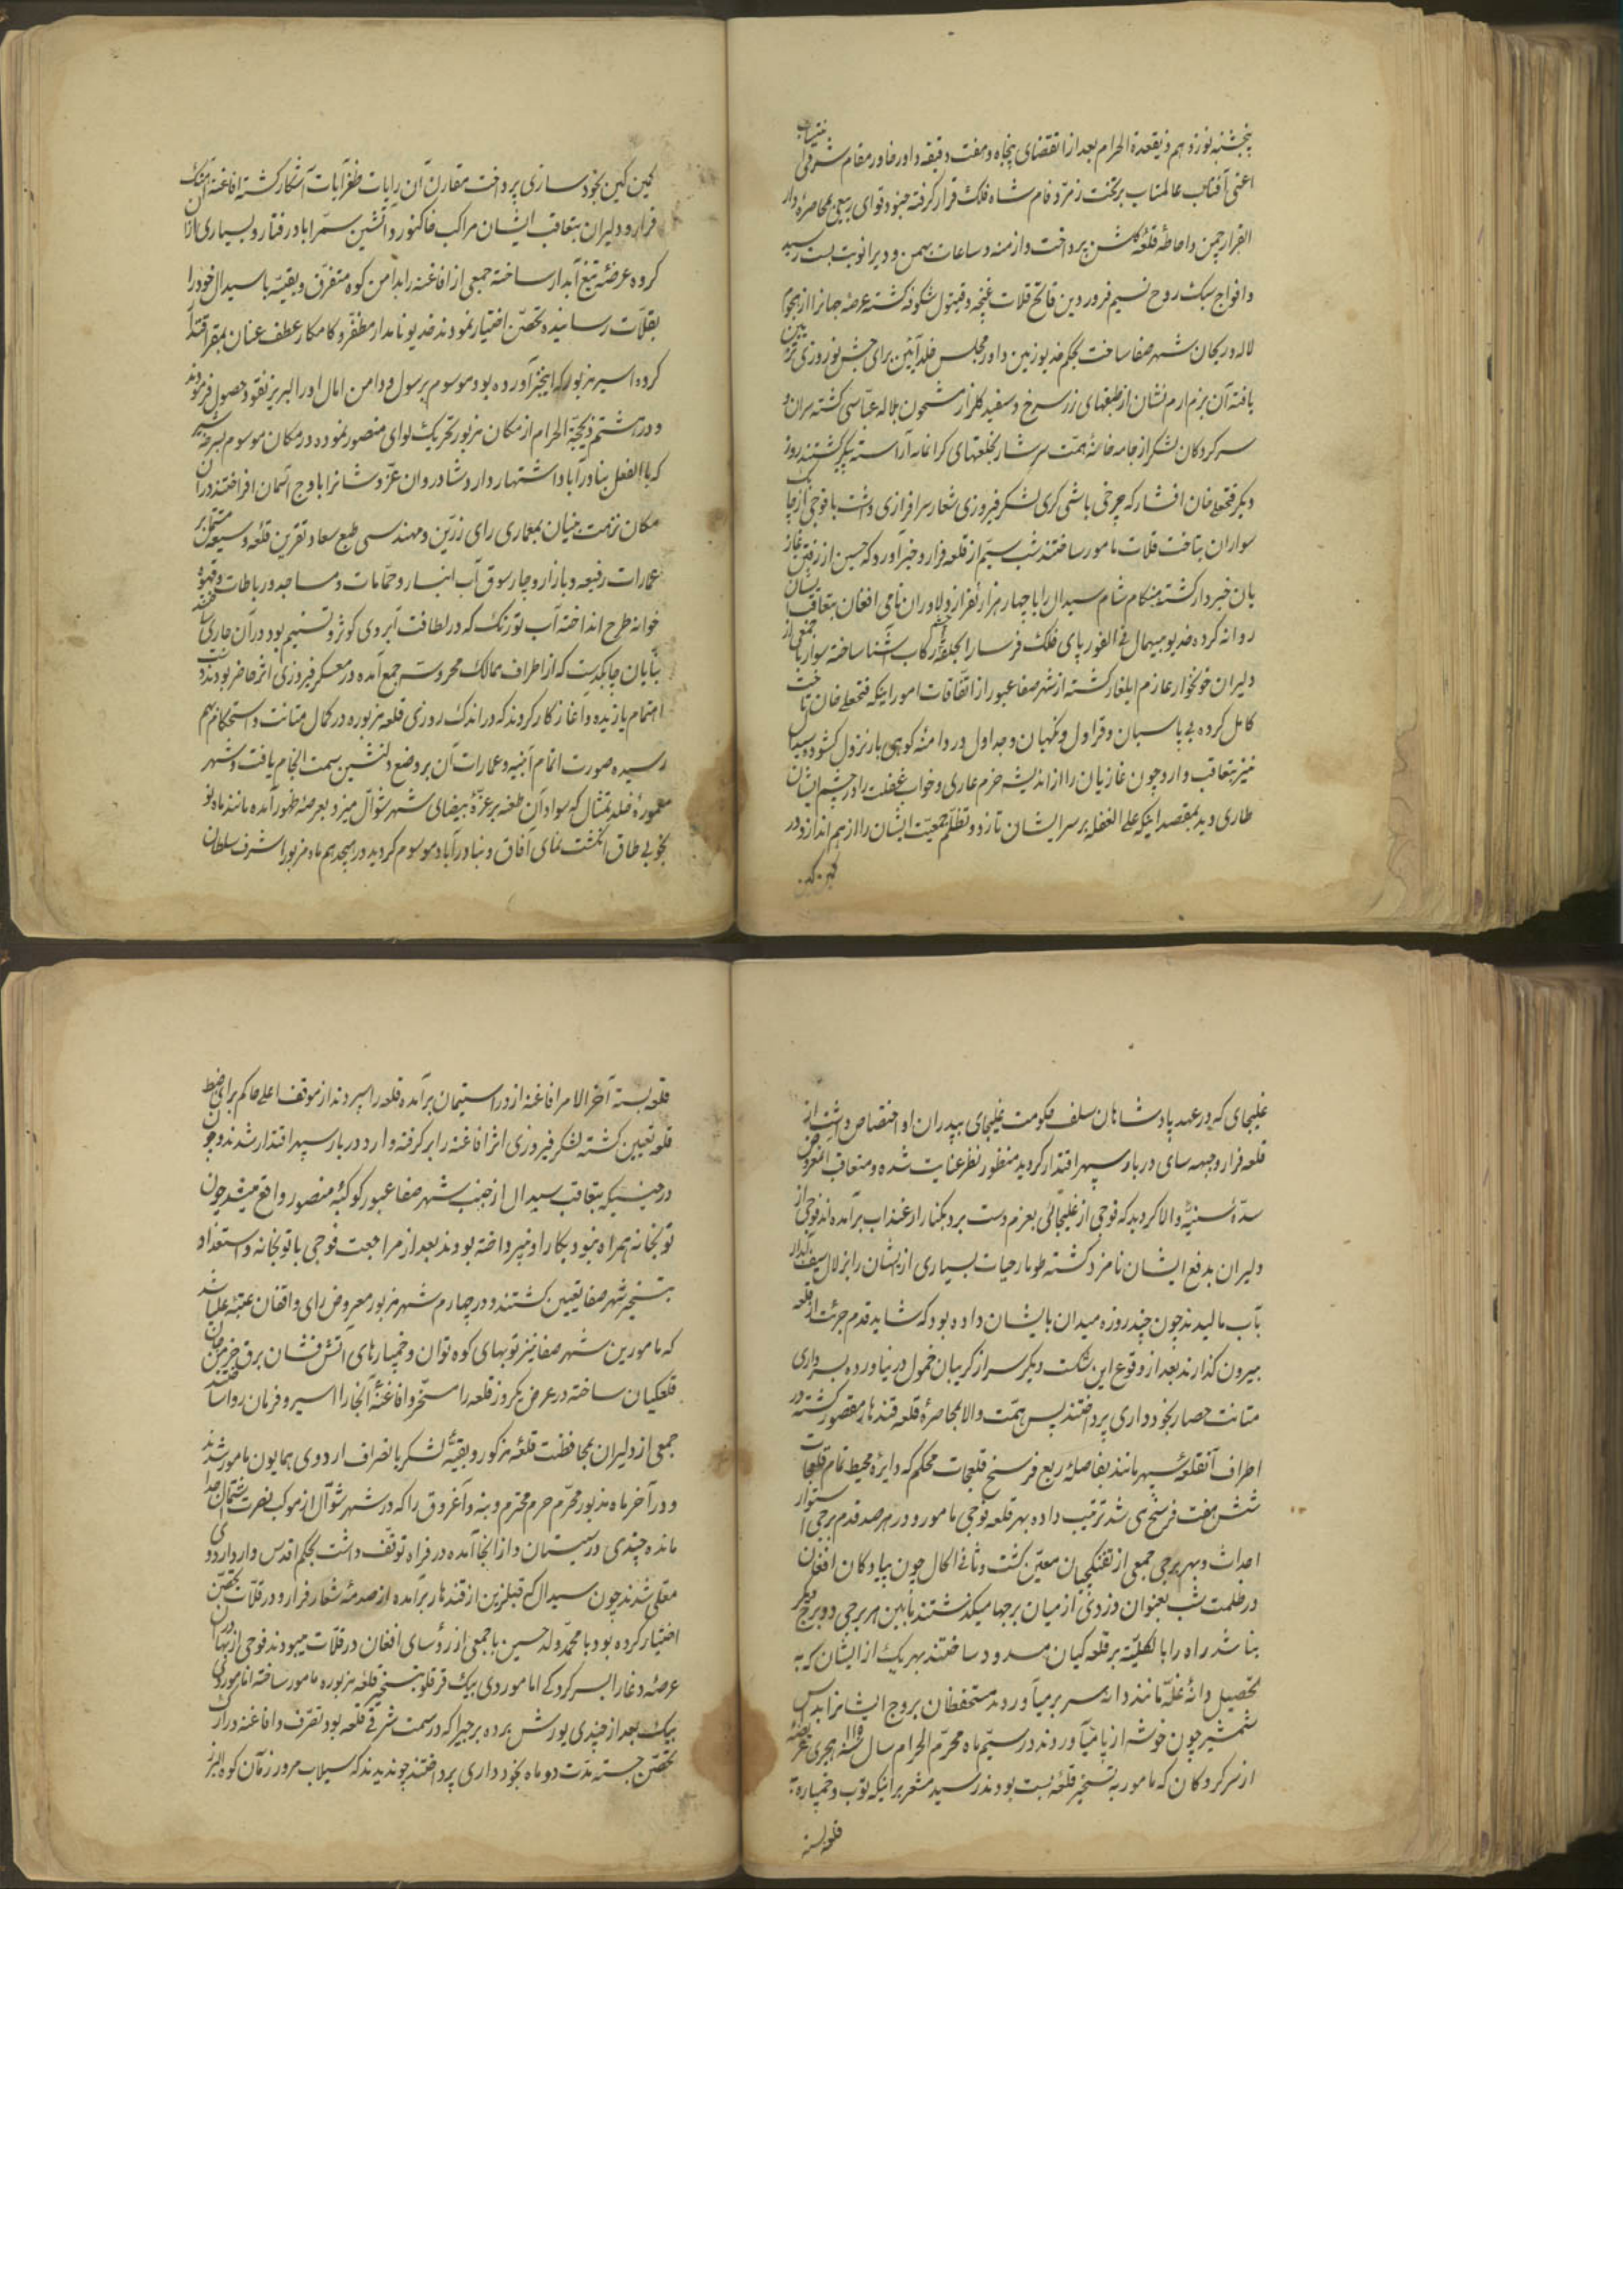 پنجشنبه نوزدهم ذیقعدة الحرام بعد از انقضای پنجاه و هفت دقیقه داور خاور مقام شرقی
اعنی آفتاب عالمتاب بر تخت زمرد فام شاه فلک قرار گرفته جنود قوای ربیعی بمحاصره دار
القرار چمن و احاطه قلعه گلشن پرداخت و ازمنه و ساعات بهمن و دی را نوبت بست رسید
و افواج سبک روح نسیم فروردین فاتح قلات غنچه و قیتول شکوفه گشته عرصه جهانرا از هجوم
لاله و ریحان شهر صفا ساخت بحکم خدیو زمین داور مجلس خلد آئین برای جشن نوروزی
یافته آن بزم ارم نشان از طبقهای زر سرخ و سفید گلزار مشحون بلاله عباسی گشته سران و
سرکردگان لشکر از جامه خانه همت سرشار بخلعتهای گرانمایه آراسته پیکر گشتند روز
دیگر فتحعلی خان افشار که چرخی باشی گری لشکر فیروزی شعار سرافرازی داشت با فوجی از
سواران بتاخت قلات مامور ساختند شب سیم از قلعه فرار و خبر آورد که حسین از رفتن غاز
یان خبردار گشته هنگام شام سیدال را با چهار هزار نفر از دلاوران نامی افغان بتعاقب ایشان
روانه کرده خدیو بیهمال فی الفور پای فلک فرسا را بحلقه رکاب آشنا ساخته سوار با جمعی از
دلیران خونخوار عازم ایلغار گشته از شهر صفا عبور از اتفاقات امور اینکه فتحعلی خان تاخت
کامل کرده بی پاسبان و قراول و نگهبان و جداول در دامنه کوهی بار نزول گشود و سیدال
نیز بتعاقب وارد چون غازیان را از اندیشه حزم عاری و خواب غفلت را در چشم ایشان
طاری دید بمقصد اینکه علی الغفله بر سر ایشان تازد و نظم جمعیت ایشان را از هم اندازد در
کمین کین
کمین کین بخودسازی پرداخت مقارن آن رایات ظفرآیات آشکار گشته افاغنه آهنگ
فرار و دلیران بتعاقب ایشان مراکب خاک نورد آتشین سم را باد رفتار و بسیاری از آن
گروه عرضه تیغ آبدار ساخته جمعی از افاغنه را بدامن کوه متفرق و بقیه با سیدال خود را
بقلات رسانیده تحصن اختیار نمودند خدیو نامدار مظفر و کامکار عطف عنان بمقر اقتدار
کرده اسیر مزبور که اینخبر آورده بود موسوم برسول و دامن امال او را لبریز نقود حصول فرمودند
و در هشتم ذیحجة الحرام از مکان مزبور تحریک لوای منصور نموده در مکان موسوم بسرخه شیر
که با الفعل بنادرآباد اشتهار دارد شادروان عز و شانرا باوج آسمان افراختند در آن
مکان نزهت بنیان بمعماری رای زرین و مهندسی طبع سعادتقرین قلعه وسیعه مشتمل بر
عمارات رفیعه و بازار و چارسوق آب انبار و حمامات و مساجد و رباطات و قهوه
خوانه طرح انداخته آب تورنک که در لطافت آبروی کوثر و تسنیم بود در آن جاری ساختند
بنایان چابکدست که از اطراف ممالک محروسه جمع آمده در معسکر فیروزی اثر حاضر بودند دست
اهتمام یازیده و آغاز کار کردند که در اندک روزی قلعه مزبوره در کمال متانت و استحکام بهم
رسیده صورت اتمام ابنیه و عمارات آن بر وضع دلنشین سمت انجام یافت و شهر
معموره خلد تمثال که سواد آن طعنه بر غره بیضای شهر شوال میزد بعرصه ظهور آمده مانند ماه نو
بخوبی طاق انگشت نمای آفاق و بنادرآباد موسوم گردید در هیجدهم ماه مزبور اشرف سلطان
غلیجای که در عهد پادشاهان سلف حکومت غلیجای بپدران او اختصاص داشت از
قلعه فرار و جبهه سای دربار سپهر اقتدار گردید منظور نظر عنایت شده و متعاقب المعروض
سده سنیه والا گردید که فوجی از غلیجائی بعزم دست برد بکنار ارغنداب برآمده اند فوجی از
دلیران بدفع ایشان نامزد گشته طومار حیات بسیاری از ایشان را بزلال سیف آبدار
بآب مالیدند چون چند روزه میدان بایشان داده بود که شاید قدم جرئت از قلعه
بیرون گذارند بعد از وقوع این شکست دیگر سر از گریبان خمول در نیاورده بسرداری
متانت حصار بخودداری پرداختند پس همت والا بمحاصره قلعه قندهار مقصور گشته در
اطراف آنقلعه سپهر مانند بفاصله ربع فرسخ قلعجات محکم که دایره محیط تمام قلعجات
شش هفت فرسخ می شد ترتیب داده بهر قلعه فوجی مامور و در هر صد قدم برجی استوار
احداث و بهر برجی جمعی از تفنگچیان معین گشت و ثانی الحال چون پیادگان افغان
در ظلمت شب بعنوان دزدی از میان برجها میگذشتند مابین هر برجی دو برج دیگر
بنا شد راه را بالکلیه بر قلعه کیان مسدود ساختند بهر یک از ایشان که به
تحصیل دانه غله مانند دانه سر بر میآوردند مستحفظان بروج ایشانرا بداس
شمشیر چون خوشه از پا میآوردند در سیم ماه محرم الحرام سال هجری عریضه
از سرکردگان که مامور به تسخیر قلعه بست بودند رسید مشعر بر اینکه توپ و خمپاره
قلعه بسته
قلعه بسته آخر الامر افاغنه از در استیمان برآمده قلعه را سپردند از موقف اعلی حاکم برای ضبط
قلعه تعیین گشته لشکر فیروزی اثر افاغنه را بر گرفته وارد دربار سپهر اقتدار شدند و چون
در حینیکه بتعاقب سیدال از جنب شهر صفا عبور کوکبه منصور واقع میشد چون
توپخانه همراه نبود بکار او نپرداخته بودند بعد از مراجعت فوجی با توپخانه و استعداد
بتسخیر شهر صفا تعیین گشتند و در چهارم شهر مزبور معروض رای واقفان عتبه علیا شد
که مامورین شهر صفا نیز توپهای کوه توان و خمپارهای آتش فشان برق خرمن جان
قلعکیان ساخته در عرض یکروز قلعه را مسخر و افاغنه آنجا را اسیر و فرمان روا ساختند
جمعی از دلیران بمحافظت قلعه مزکور و بقیه لشکر بانصراف اردوی همایون مامور شدند
و در آخر ماه مذبور محرم حرم محترم و بنه و آغروق را که در شهر شوال از موکب نصرت اشتمال جدا
مانده چندی در سیستان و از انجا آمده در فراه توقف داشت بحکم اقدس وارد اردوی
معلی شدند چون سیدال که قبل ازین از قندهار برآمده از صدمه شعار فرار و در قلات تحصن
اختیار کرده بود با محمد ولد حسین با جمعی از رؤسای افغان در قلات میبودند فوجی از بهادران
عرصه دغا را بسرکردگی امام وردی بیک قرقلو بتسخیر قلعه مزبوره مامور ساخته امام وردی
بیک بعد از چندی یورش برده برجیرا که در سمت شرقی قلعه بود تصرف و افاغنه در ارک
تحصن جسته مدت دو ماه بخودداری پرداختند چو ندیدند که سیلاب مرور زمان کوه البرز